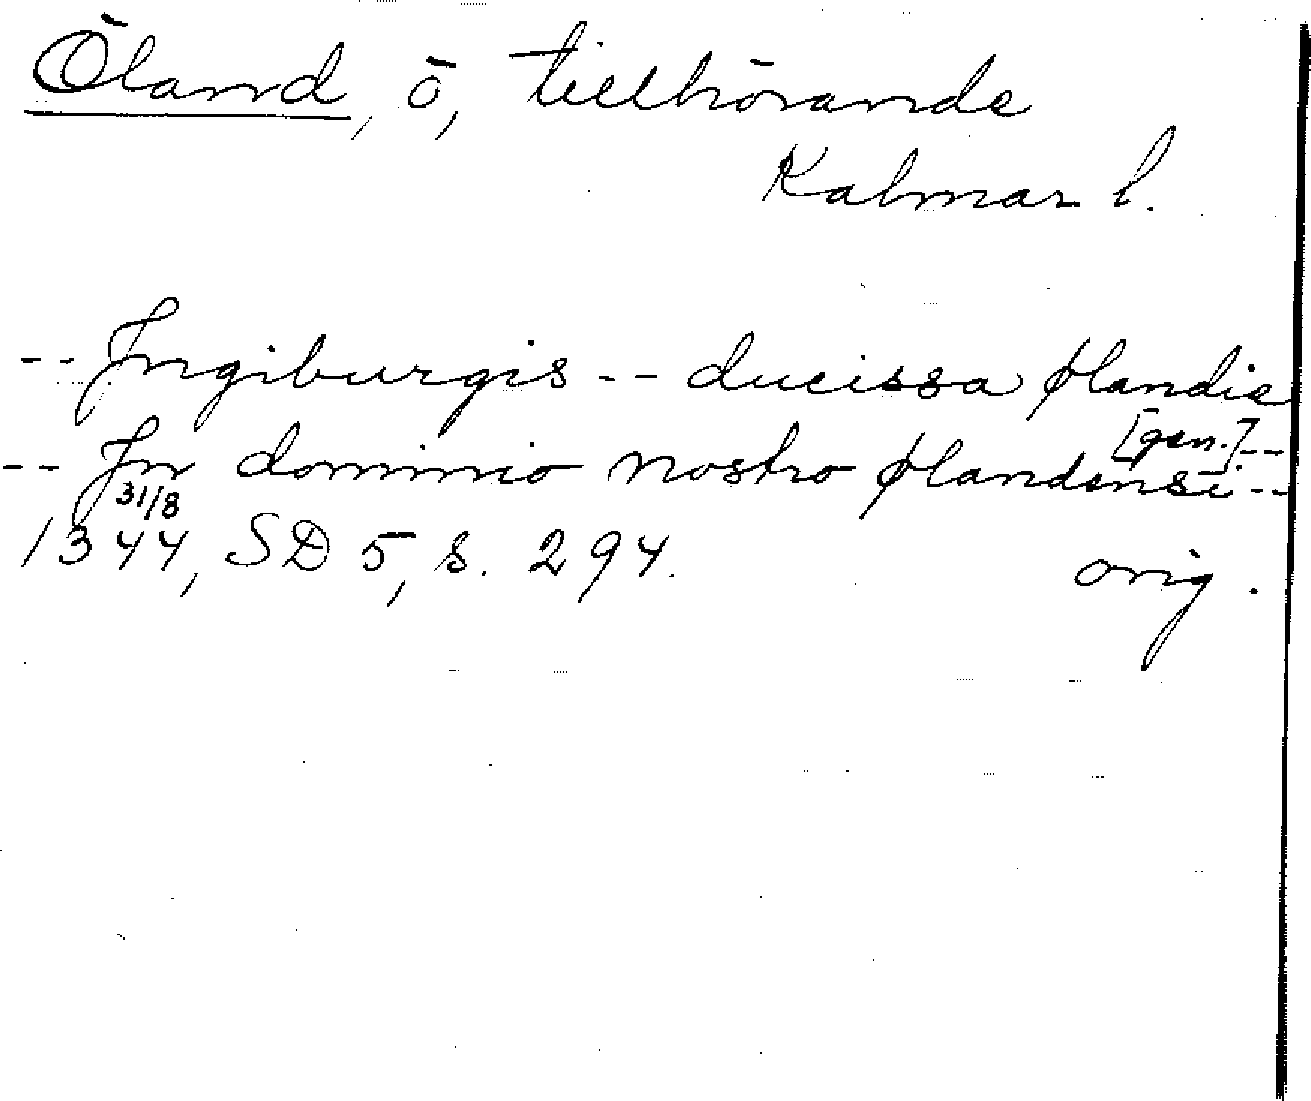 Öland, ö, tillhörande
Kalmar l.
-- Ingiburgis -- ducissa Ølandie
[gen.]--
-- In dominio nostro Ølandensi --
31/8
1344, SD 5, s. 294. orig.